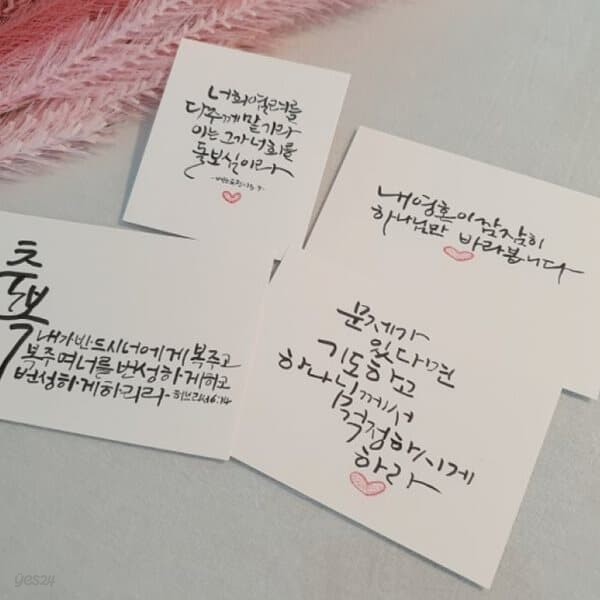 너희 염려를
다 주께 맡기라
이는 그가 너희를
돌보심이라
내 영혼이 잠잠히
하나님만 바라봅니다
축복
내가 반드시 너에게 복주고
복주며 너를 번성하게하고
번성하게하리라 - 히브리서6:14
문제가
있다면
기도하고
하나님께서
걱정하시게
하라
yes24